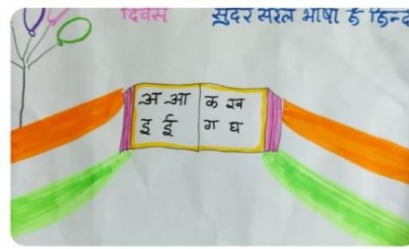 दिवस
सुंदर सरल भाषा है
अ आ क ख
इ ई ग घ